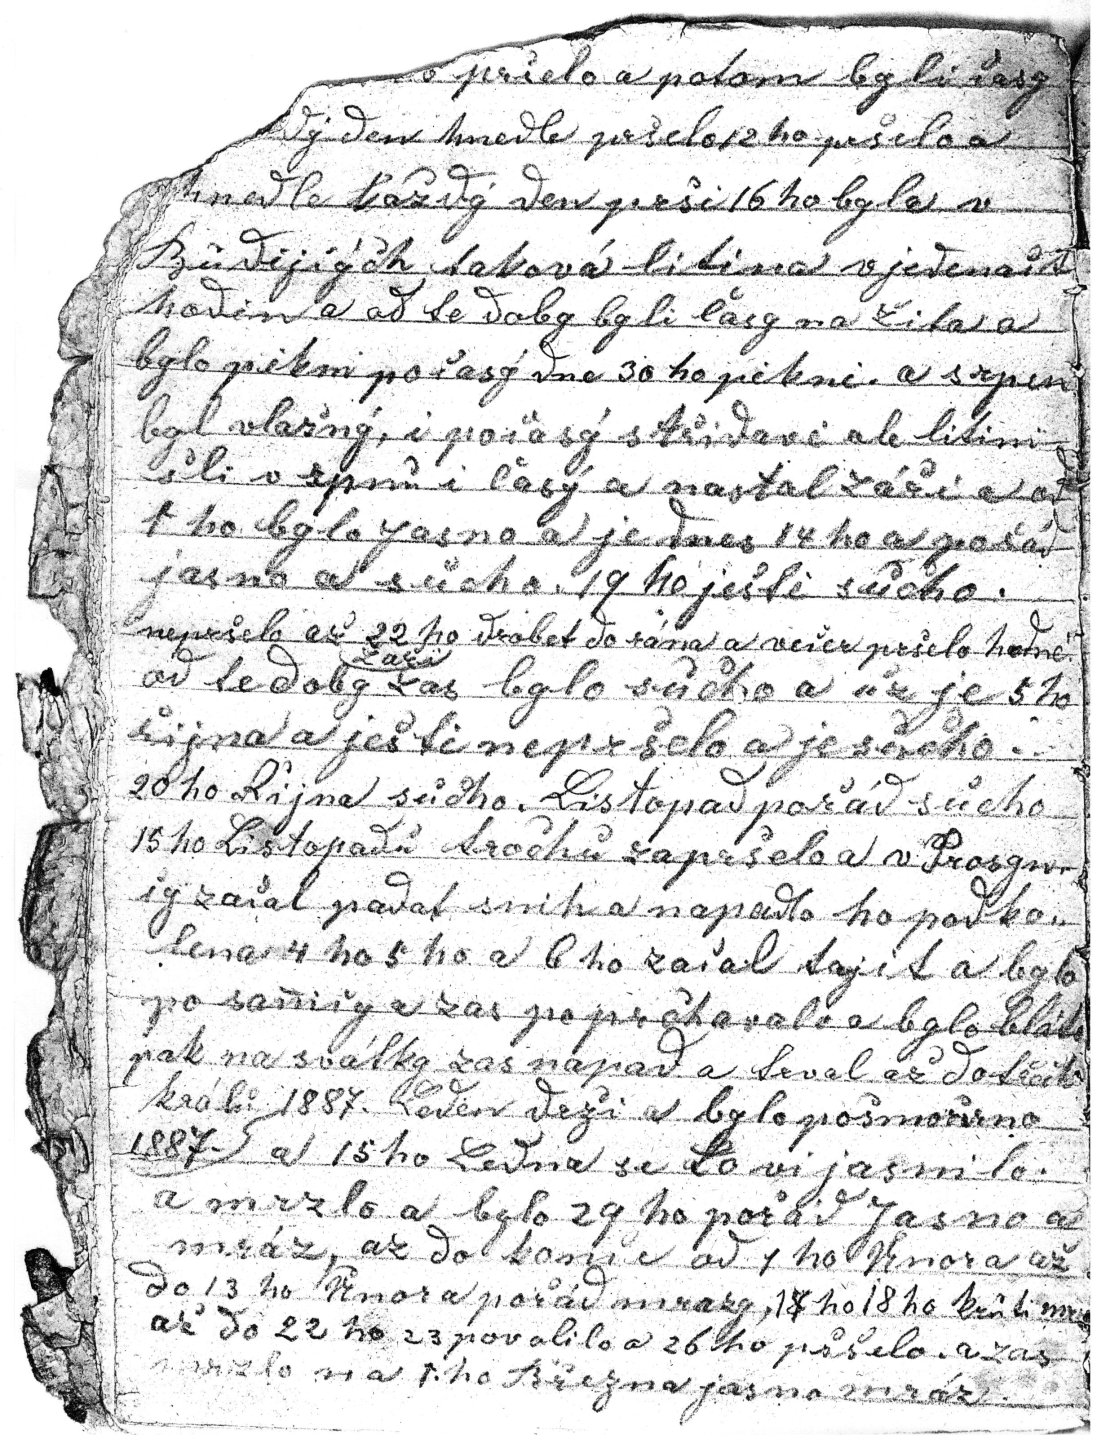 o pršelo a potom byli časy
dý den hnedle pršelo 12 ho pršelo a
hnedle každý den prši 16 ho byla v
taková litina v jedenáct
hodin a od te doby byli časy na žita a
bylo pikni počasý dne 30 ho pikni. a srpen
byl vlažný, i počasý střidavi ale litini
šli v srpnu i časý a nastal záři a od
1 ho bylo Jasno a je dnes 14 ho a pořád
jasno a sucho. 19 ho ješti sucho.
nepršelo až 22 ho drobet do rána a večer pršelo hodně
záři
od te doby zas bylo sucho a už je 5 ho
řijna a ješti nepršelo a je sucho.
20 ho Řijna sucho. Listopad pořád sucho
15 ho Listopadu trochu zapršelo a v Prosyn-
cy začal padat snih a napadlo ho pod ko„
lena 4 ho 5 ho a 6 ho začal tajit a bylo
po sanicy a zas poprchavalo a bylo bláto
pak na svátky zas napad a trval až do tří
králu 1887. Leden deži a bylo pošmourno
1887. a 15 ho Ledna se to vijasnilo.
a mrzlo a bylo 29 ho pořád Jasno a
mráz, až do konce od 1 ho Února až
do 13 ho Února pořád mrazy, 17 ho 18 ho kruti
až do 22 ho 23 povolilo a 26 ho pršelo. a zas
mrzlo na 1. ho Března jasno mráz.